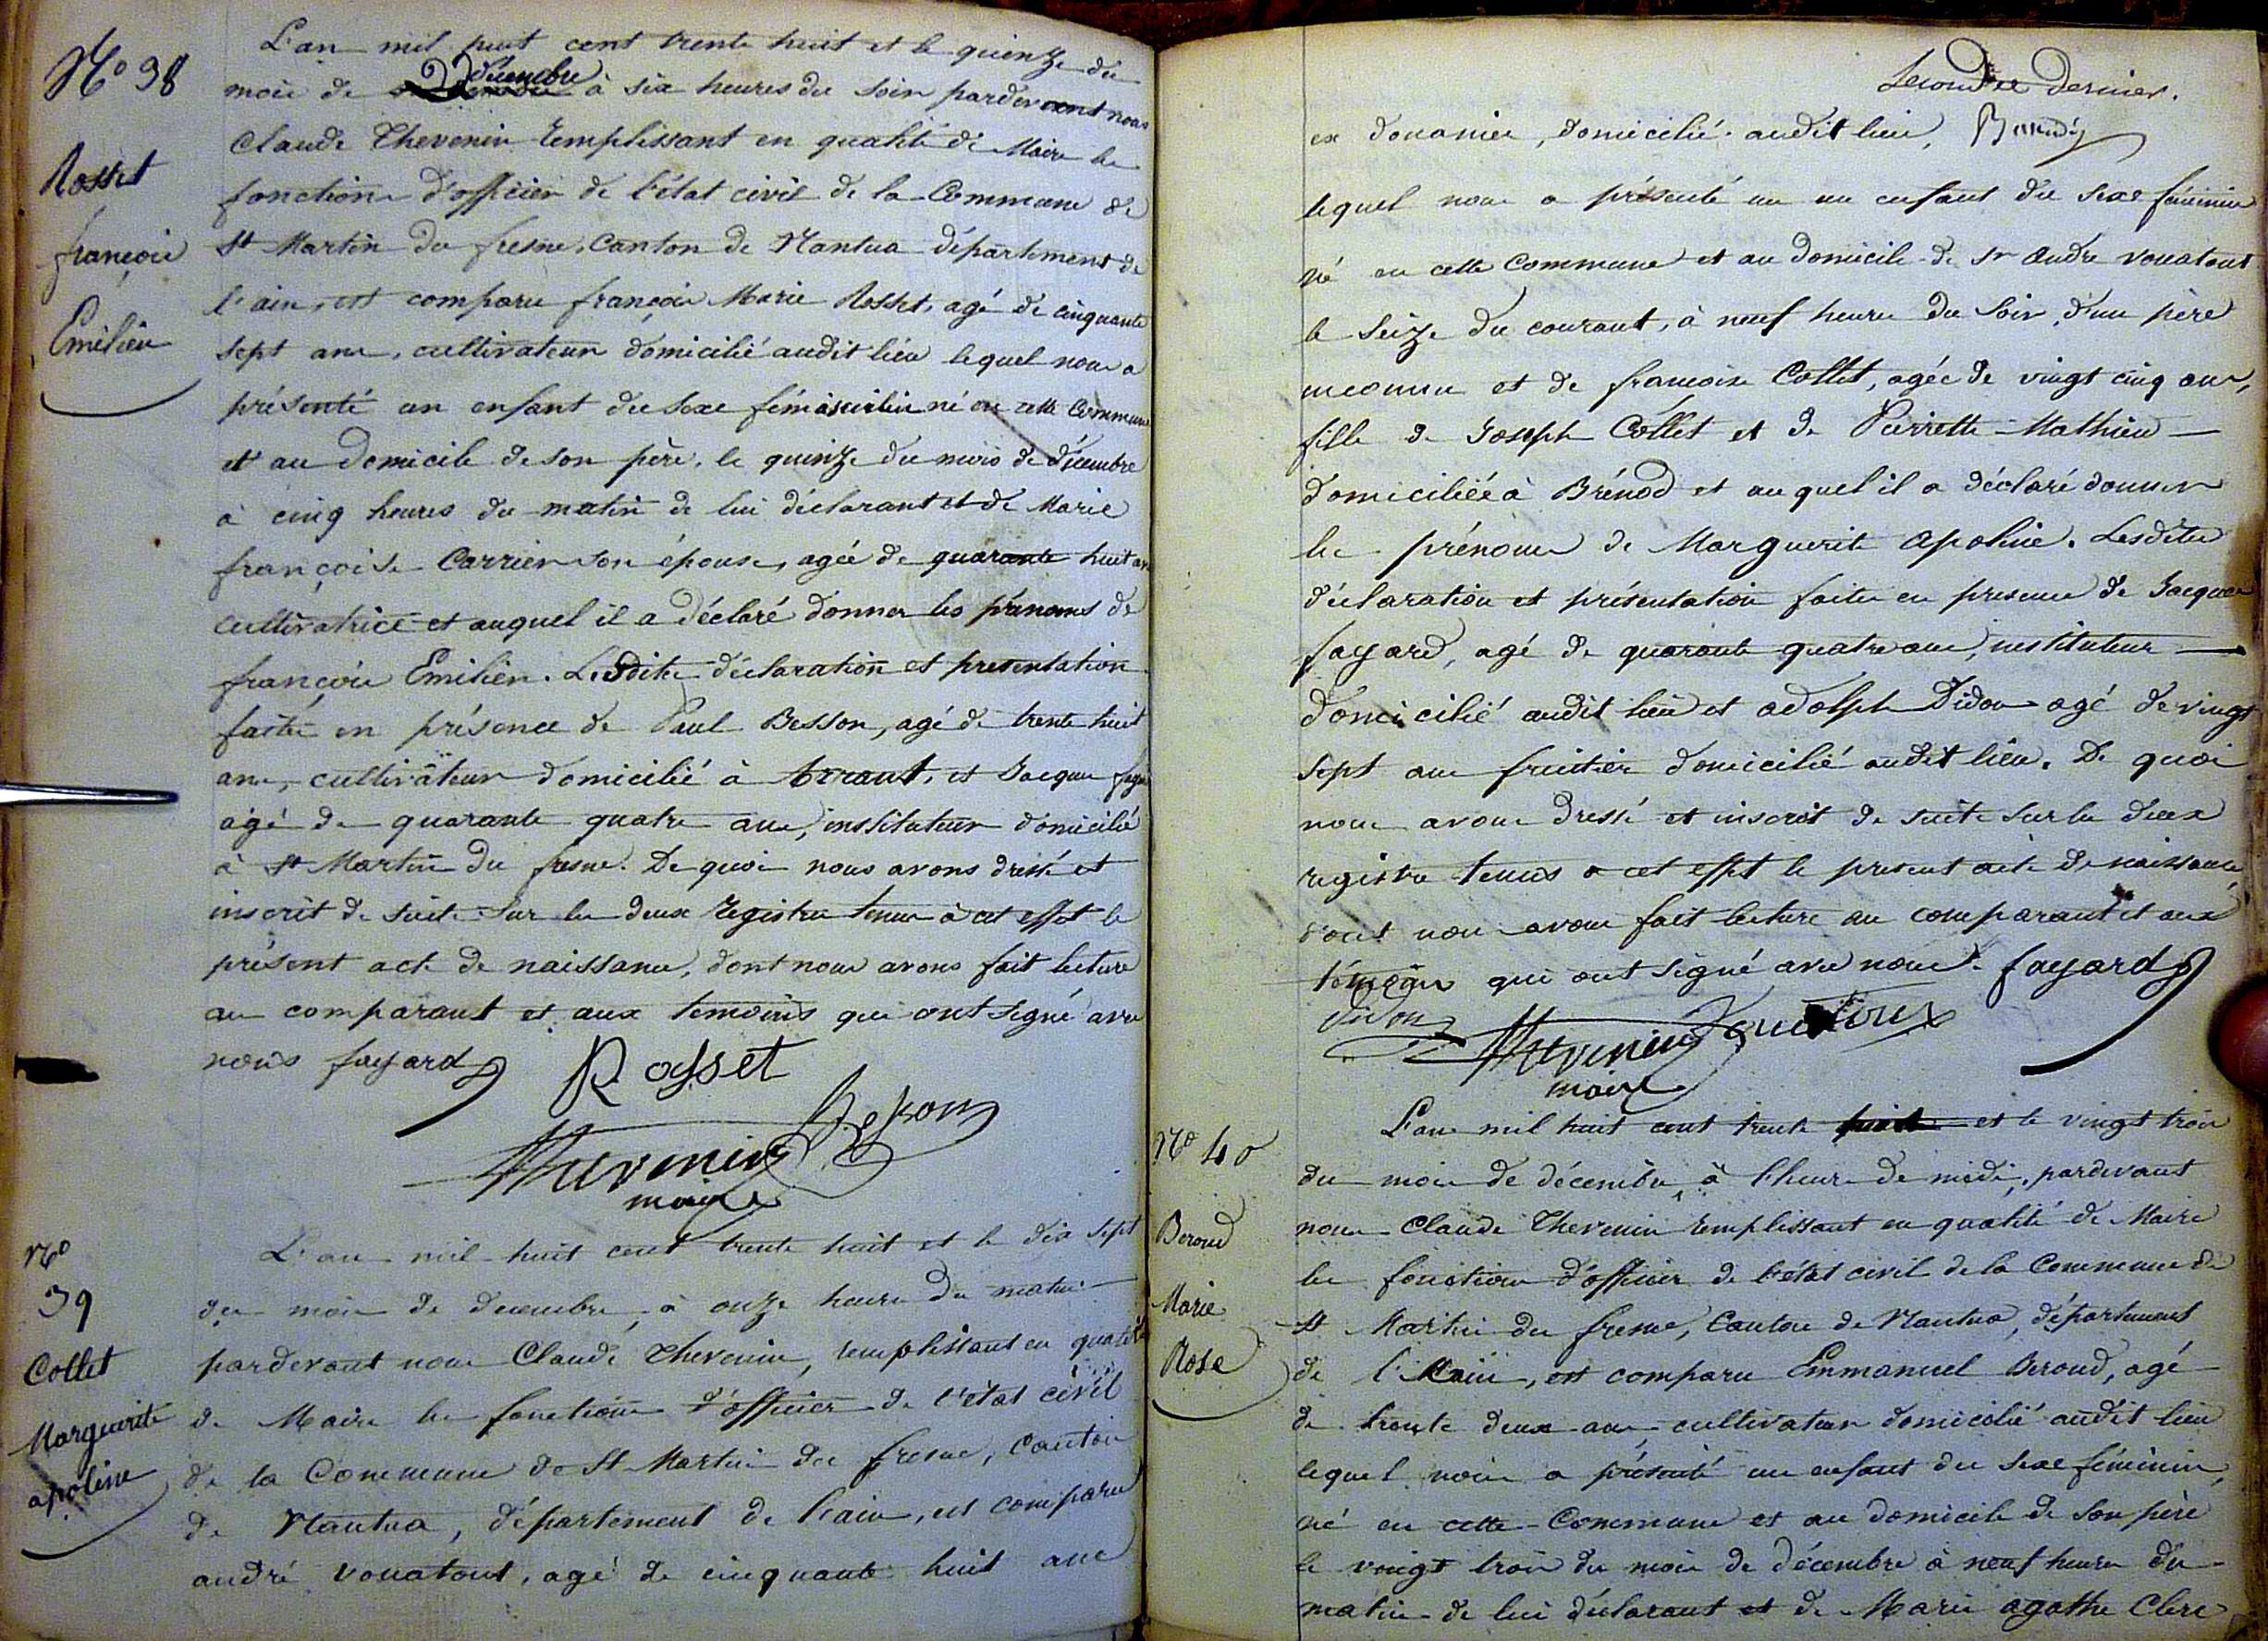 N° 38
Rosset
françois
Emilien
L'an mil huit cent trente huit et le quinze du
mois de décembre à six heures du soir pardevant nous
Claude Thevenin remplissant en qualité de Maire les
fonctions d'officier de l'état civil de la Commune de
St Martin du fresne, Canton de Nantua département de
l'ain, est comparu françois Marie Rosset, agé de cinquante
sept ans, cultivateur domicilié audit lieu lequel nous a
présenté un enfant du sexe masculin né en cette Commune
et au Domicile de son père, le quinze du mois de décembre
à cinq heures du matin de lui déclarant et de Marie
françoise Carrier son épouse, agée de quarante huit ans
cultivatrice et auquel il a déclaré donner les prénoms de
françois Emilien. Lesdites déclaration et presentation
faites en présence de Paul Besson, agé de trente huit
ans, cultivateur domicilié à , et Jacques fayard
agé de quarante quatre ans, instituteur domicilié
à St Martin du fresne. De quoi nous avons dressé et
inscrit de suite sur les deux registres tenus à cet effet le
présent acte de naissance, dont nous avons fait lecture
au comparant et aux temoins qui ont signé avec
nous fayard Rosset
Thevenin Besson
maire
N°
39
Collet
Marguerite
apoline
L'an mil huit cent trente huit et le dix sept
du mois de decembre, à onze heures du matin
pardevant nous Claude Thevenin, remplissant en qualité
de Maire les fonctions d'officier de l'état civil
de la Commune de St Martin du fresne, Canton
de Nantua, département de l'ain, est comparu
andré vouatoux, agé de cinquante huit ans
Second et Dernier.
ex douanier, domicilié audit lieu,
lequel nous a présenté un enfant du sexe féminin
né en cette Commune et au domicile de sr andré vouatoux
le seize du courant, à neuf heures du soir, d'un père
inconnu et de françoise Collet, agée de vingt cinq ans,
fille de Joseph Collet et de Pierrette Mathieu
domiciliée à Brénod et auquel il a déclaré donner
les prénoms de Marguerite Apoline. Lesdites
déclaration et présentation faites en presence de Jacques
fayard, agé de quarante quatre ans, instituteur
domicilié audit lieu et adolph Didon agé de vingt
sept ans fruitier domicilié audit lieu. De quoi
nous avons dressé et inscrit de suite sur les deux
registres tenus a cet effet le present acte de naissance,
dont nous avons fait lecture au comparant et aux
témoins qui ont signé avec nous. fayard
Didon Thevenin Vouatoux
maire
N° 40
Beroud
Marie
Rose
L'an mil huit cent trente huit et le vingt trois
du mois de décembre, à l'heure de midi, pardevant
nous Claude Thevenin remplissant en qualité de Maire
les fonctions d'officier de l'état civil de la Commune de
St Martin du fresne, Canton de Nantua, département
de l'ain, est comparu Emmanuel Beroud, agé
de trente deux ans, cultivateur domicilié audit lieu
lequel nous a présenté un enfant du sexe féminin,
né en cette Commune et au domicile de son père
le vingt trois du mois de décembre à neuf heures du
matin de lui déclarant et de Marie agathe Clerc